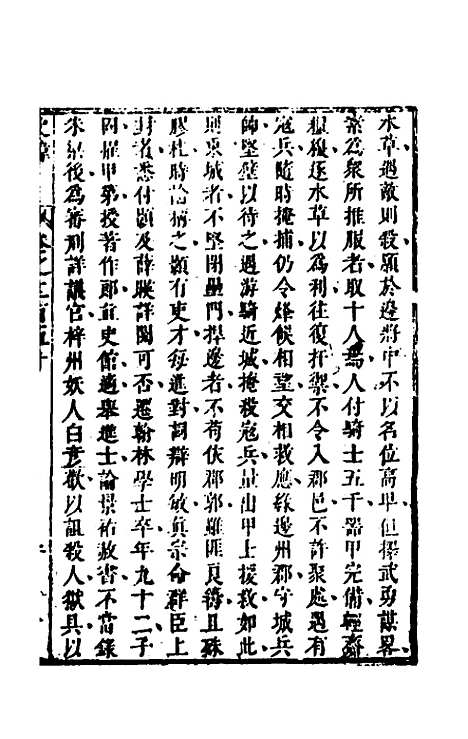 水草遇敵則殺願於邊將中不以名位高卑但擇武勇謀畧
當為眾所推服者取十人每人付騎士五千器甲完備輕齎
糗糧逐水草以為利往復扞禦不令入郡邑不許聚處遇有
寇兵隨時掩捕仍令烽候相望交相救應緣邊州郡守城兵
帥堅壁以待之遇游騎近城掩殺寇兵量出甲士援救如此
則乘城者不堅閉壘門捍邊者不苟依郡郭雖匪良籌且殊
膠柱時洽稱之顥有吏才每進對詞辯明敏真宗命群臣上
封者悉付顥及薛暎詳閱可否遷翰林學士卒年九十二子
岡擢甲第授著作郎直史館適舉進士論景祐赦書不當錄
朱梁後為審刑詳議官梓州妖人白彥歡以詛殺人獄具以